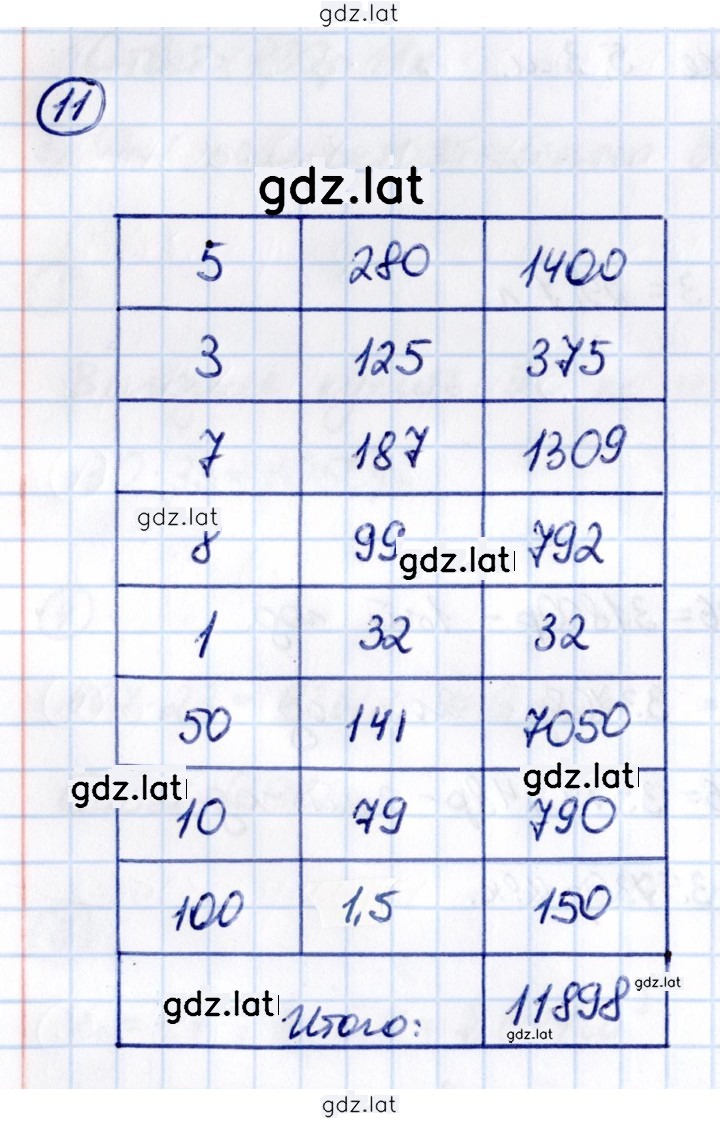 gdz.lat
11
gdz.lat
5 280 1400
3 125 375
7 187 1309
gdz.lat
8 99 792
gdz.lat
1 32 32
50 141 7050
gdz.lat gdz.lat
10 79 790
100 1,5 150
gdz.lat Итого: 11898 gdz.lat
gdz.lat
gdz.lat